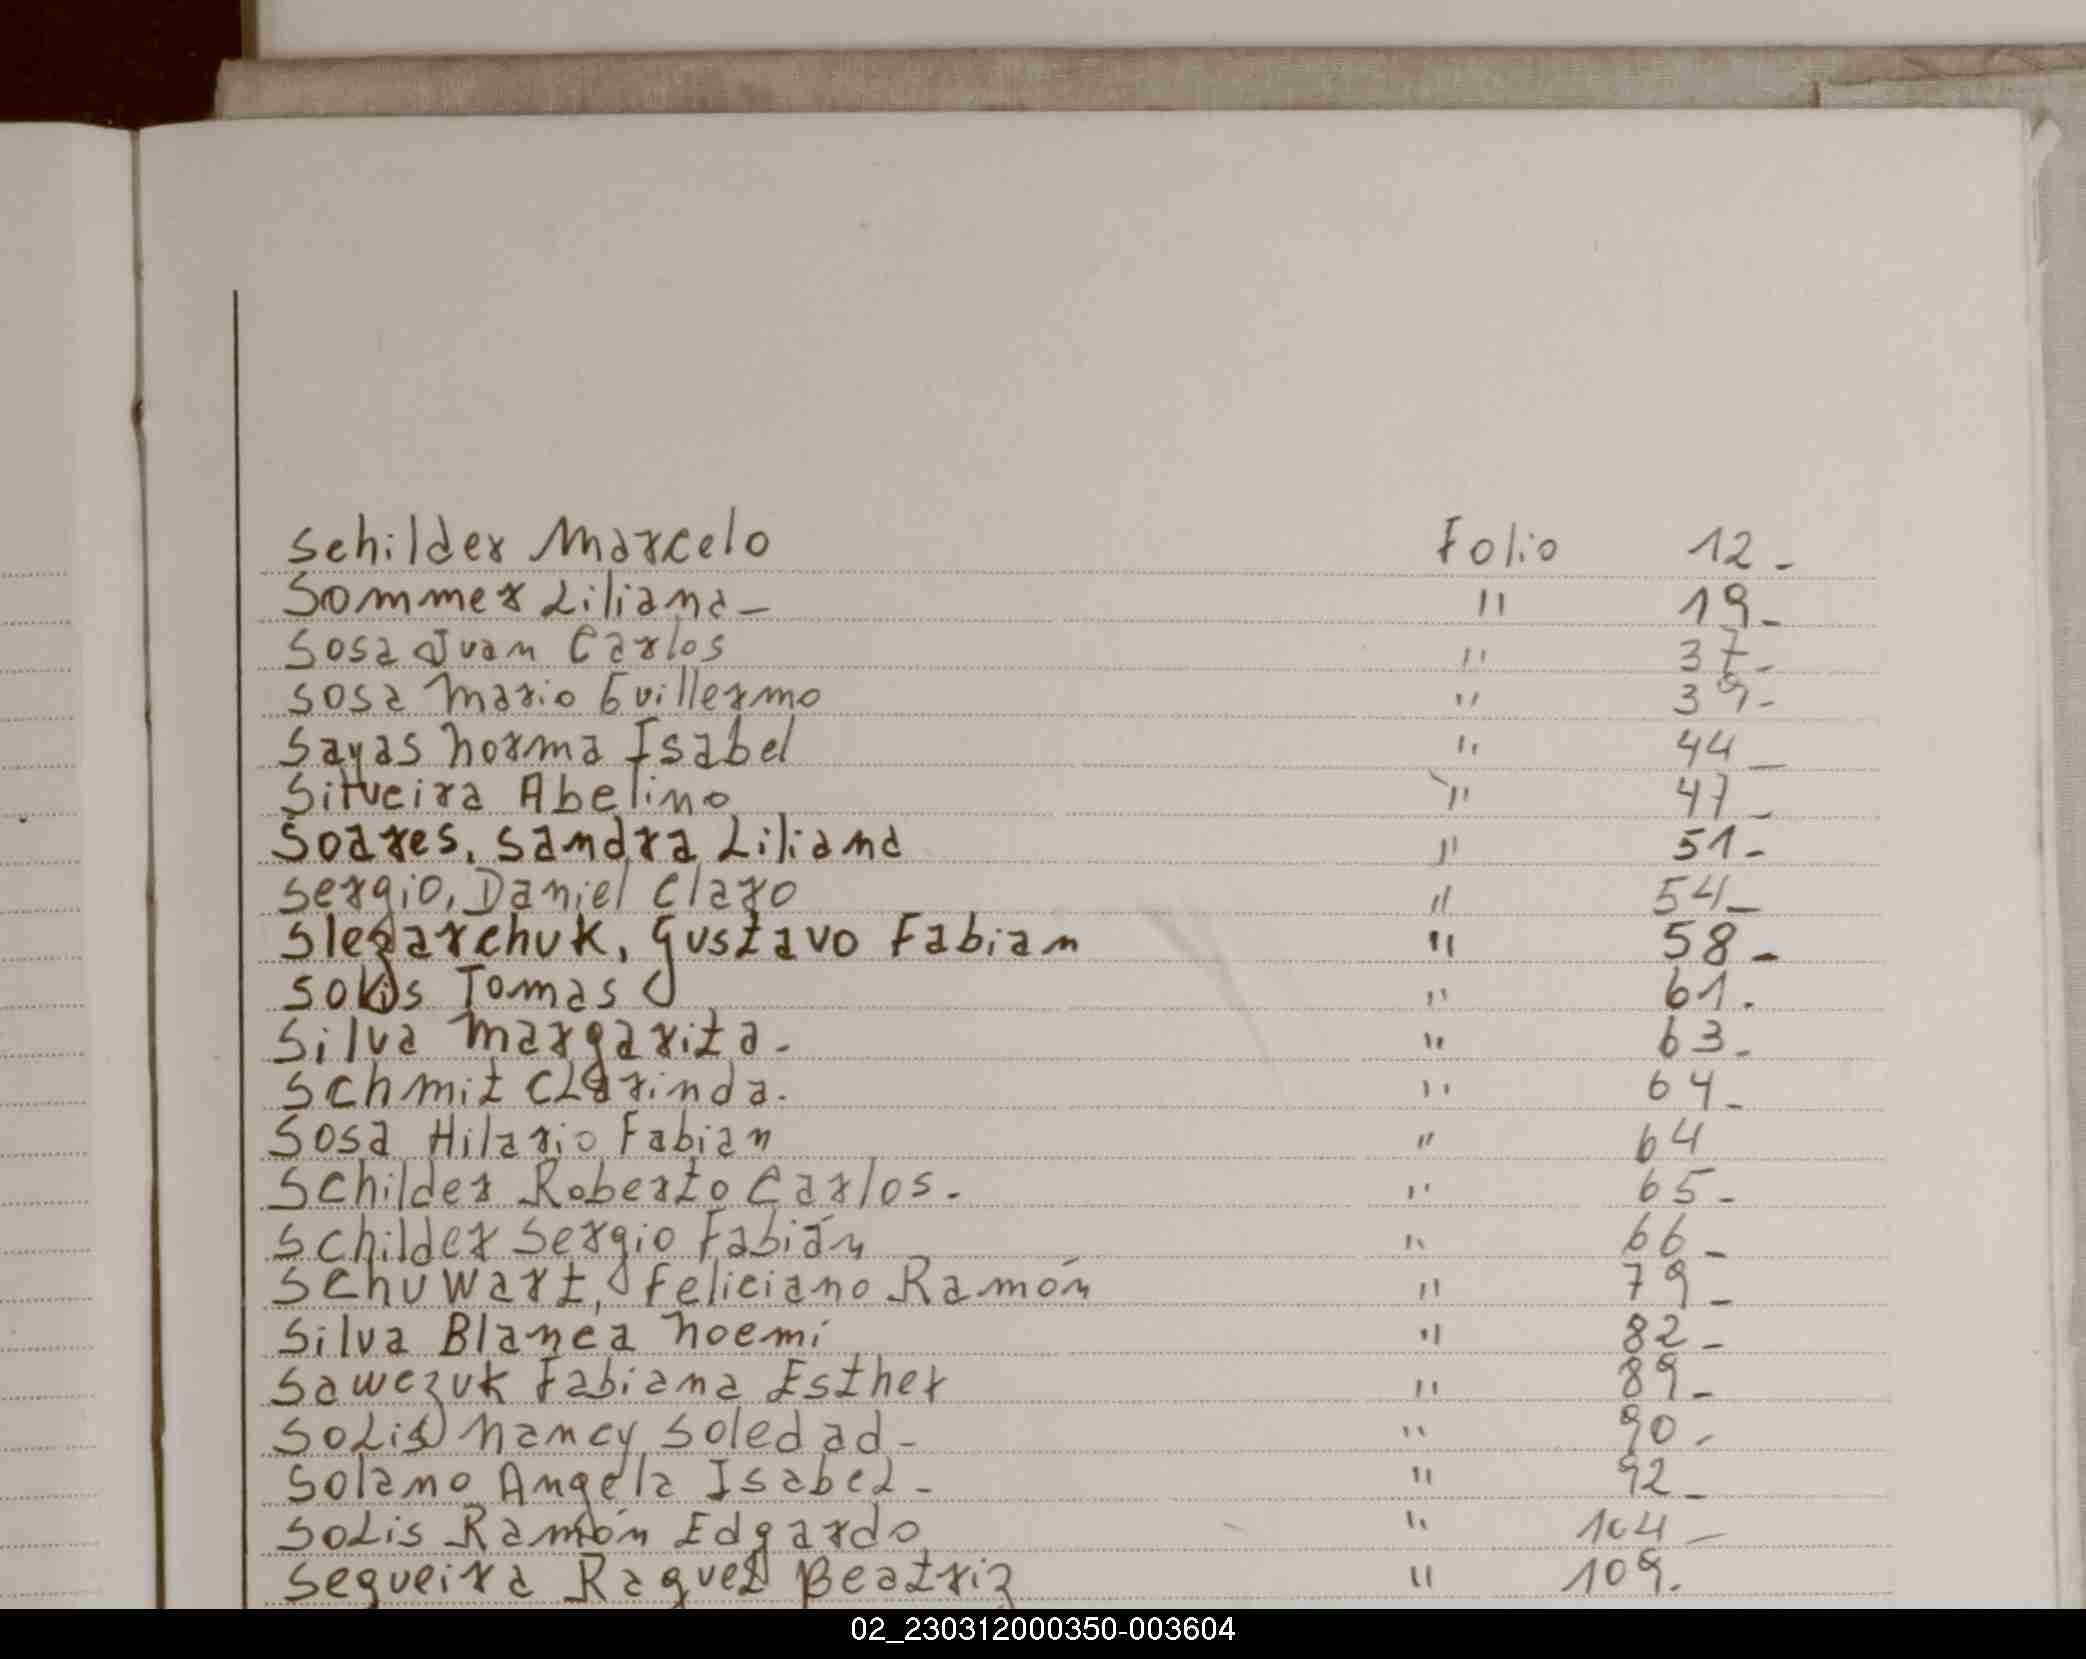 Schilder Marcelo Folio 12_
Sommer Liliana_ " 19_
Sosa Juan Carlos " 37_
Sosa Mario Guillermo " 39-
Sayas Norma Isabel " 44_
Silveira Abelino " 47_
Soares, Sandra Liliana " 51-
Sergio, Daniel Claro " 54_
Slegarchuk, Gustavo Fabian " 58_
Solis Tomas " 61.
Silva Margarita. " 63_
Schmit Clarinda. " 64_
Sosa Hilario Fabian " 64
Schilder Roberto Carlos. " 65-
Schilder Sergio Fabián " 66_
Schuwart, Feliciano Ramón " 79_
Silva Blanca Noemi " 82_
Sawczuk Fabiana Esther " 89_
Solis Nancy Soledad_ " 90-
Solano Angela Isabel_ " 92_
Solis Ramón Edgardo " 104_
Sequeira Raquel Beatriz " 109.
02_230312000350-003604